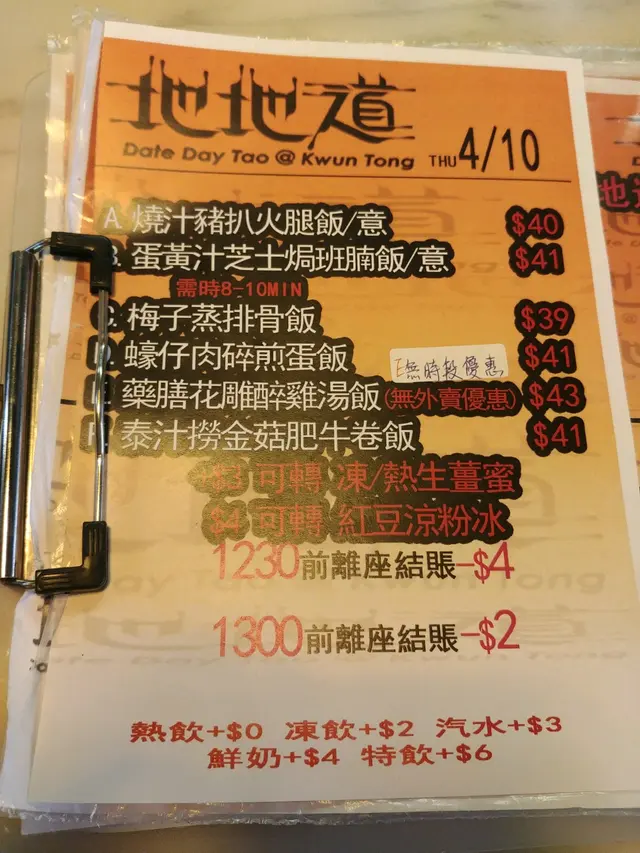 地地道
Date Day Tao @ Kwun Tong THU 4/10
A. 燒汁豬扒火腿飯/意 $40
B. 蛋黃汁芝士焗班腩飯/意 $41
需時8-10MIN
C. 梅子蒸排骨飯 $39
D. 蠔仔肉碎煎蛋飯 $41
E無時段優惠
E. 藥膳花雕醉雞湯飯(無外賣優惠) $43
F. 泰汁撈金菇肥牛卷飯 $41
+$3 可轉 凍/熱生薑蜜
+$4 可轉 紅豆涼粉冰
1230前離座結賬-$4
1300前離座結賬-$2
熱飲+$0 凍飲+$2 汽水+$3
鮮奶+$4 特飲+$6